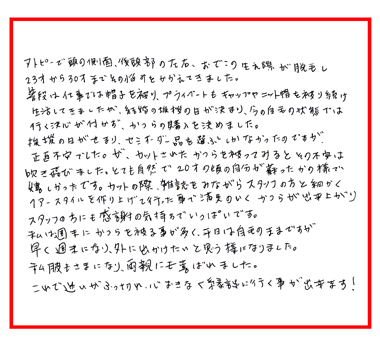 アトピーで頭の側面、後頭部の左右、おでこの生え際が脱毛し
23才から30才までその悩みをかかえてきました。
普段は仕事では帽子を被り、プライベートもキャップやニット帽を被り続け
生活してきましたが、結婚の挨拶の日が決まり、今の自毛の状態では
行く決心が付かず、かつらの購入を決めました。
挨拶の日がせまり、セミオーダー品を選ぶしかなかったのですが
正直不安でした。が、カットされたかつらを被ってみるとその不安は
吹き飛びました。とても自然で20才の頃の自分が蘇ったかの様で
嬉しかったです。カットの際、雑誌をみながらスタッフの方と細かく
ヘアースタイルを作り上げて行った事で満足のいくかつらが出来上がり
スタッフの方にも感謝の気持ちでいっぱいです。
私は週末にかつらを被る事が多く、平日は自毛のままですが
早く週末になり、外に出かけたいと思う様になりました。
両親にも喜ばれました。
これで迷いがふっ切れ、心おきなく結婚の挨拶に行く事が出来ます!